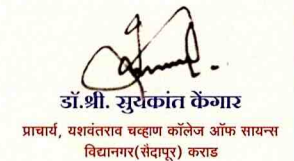 डॉ.श्री. सुर्यकांत केंगार
प्राचार्य, यशवंतराव चव्हाण कॉलेज ऑफ सायन्स
विद्यानगर(सैदापूर) कराड